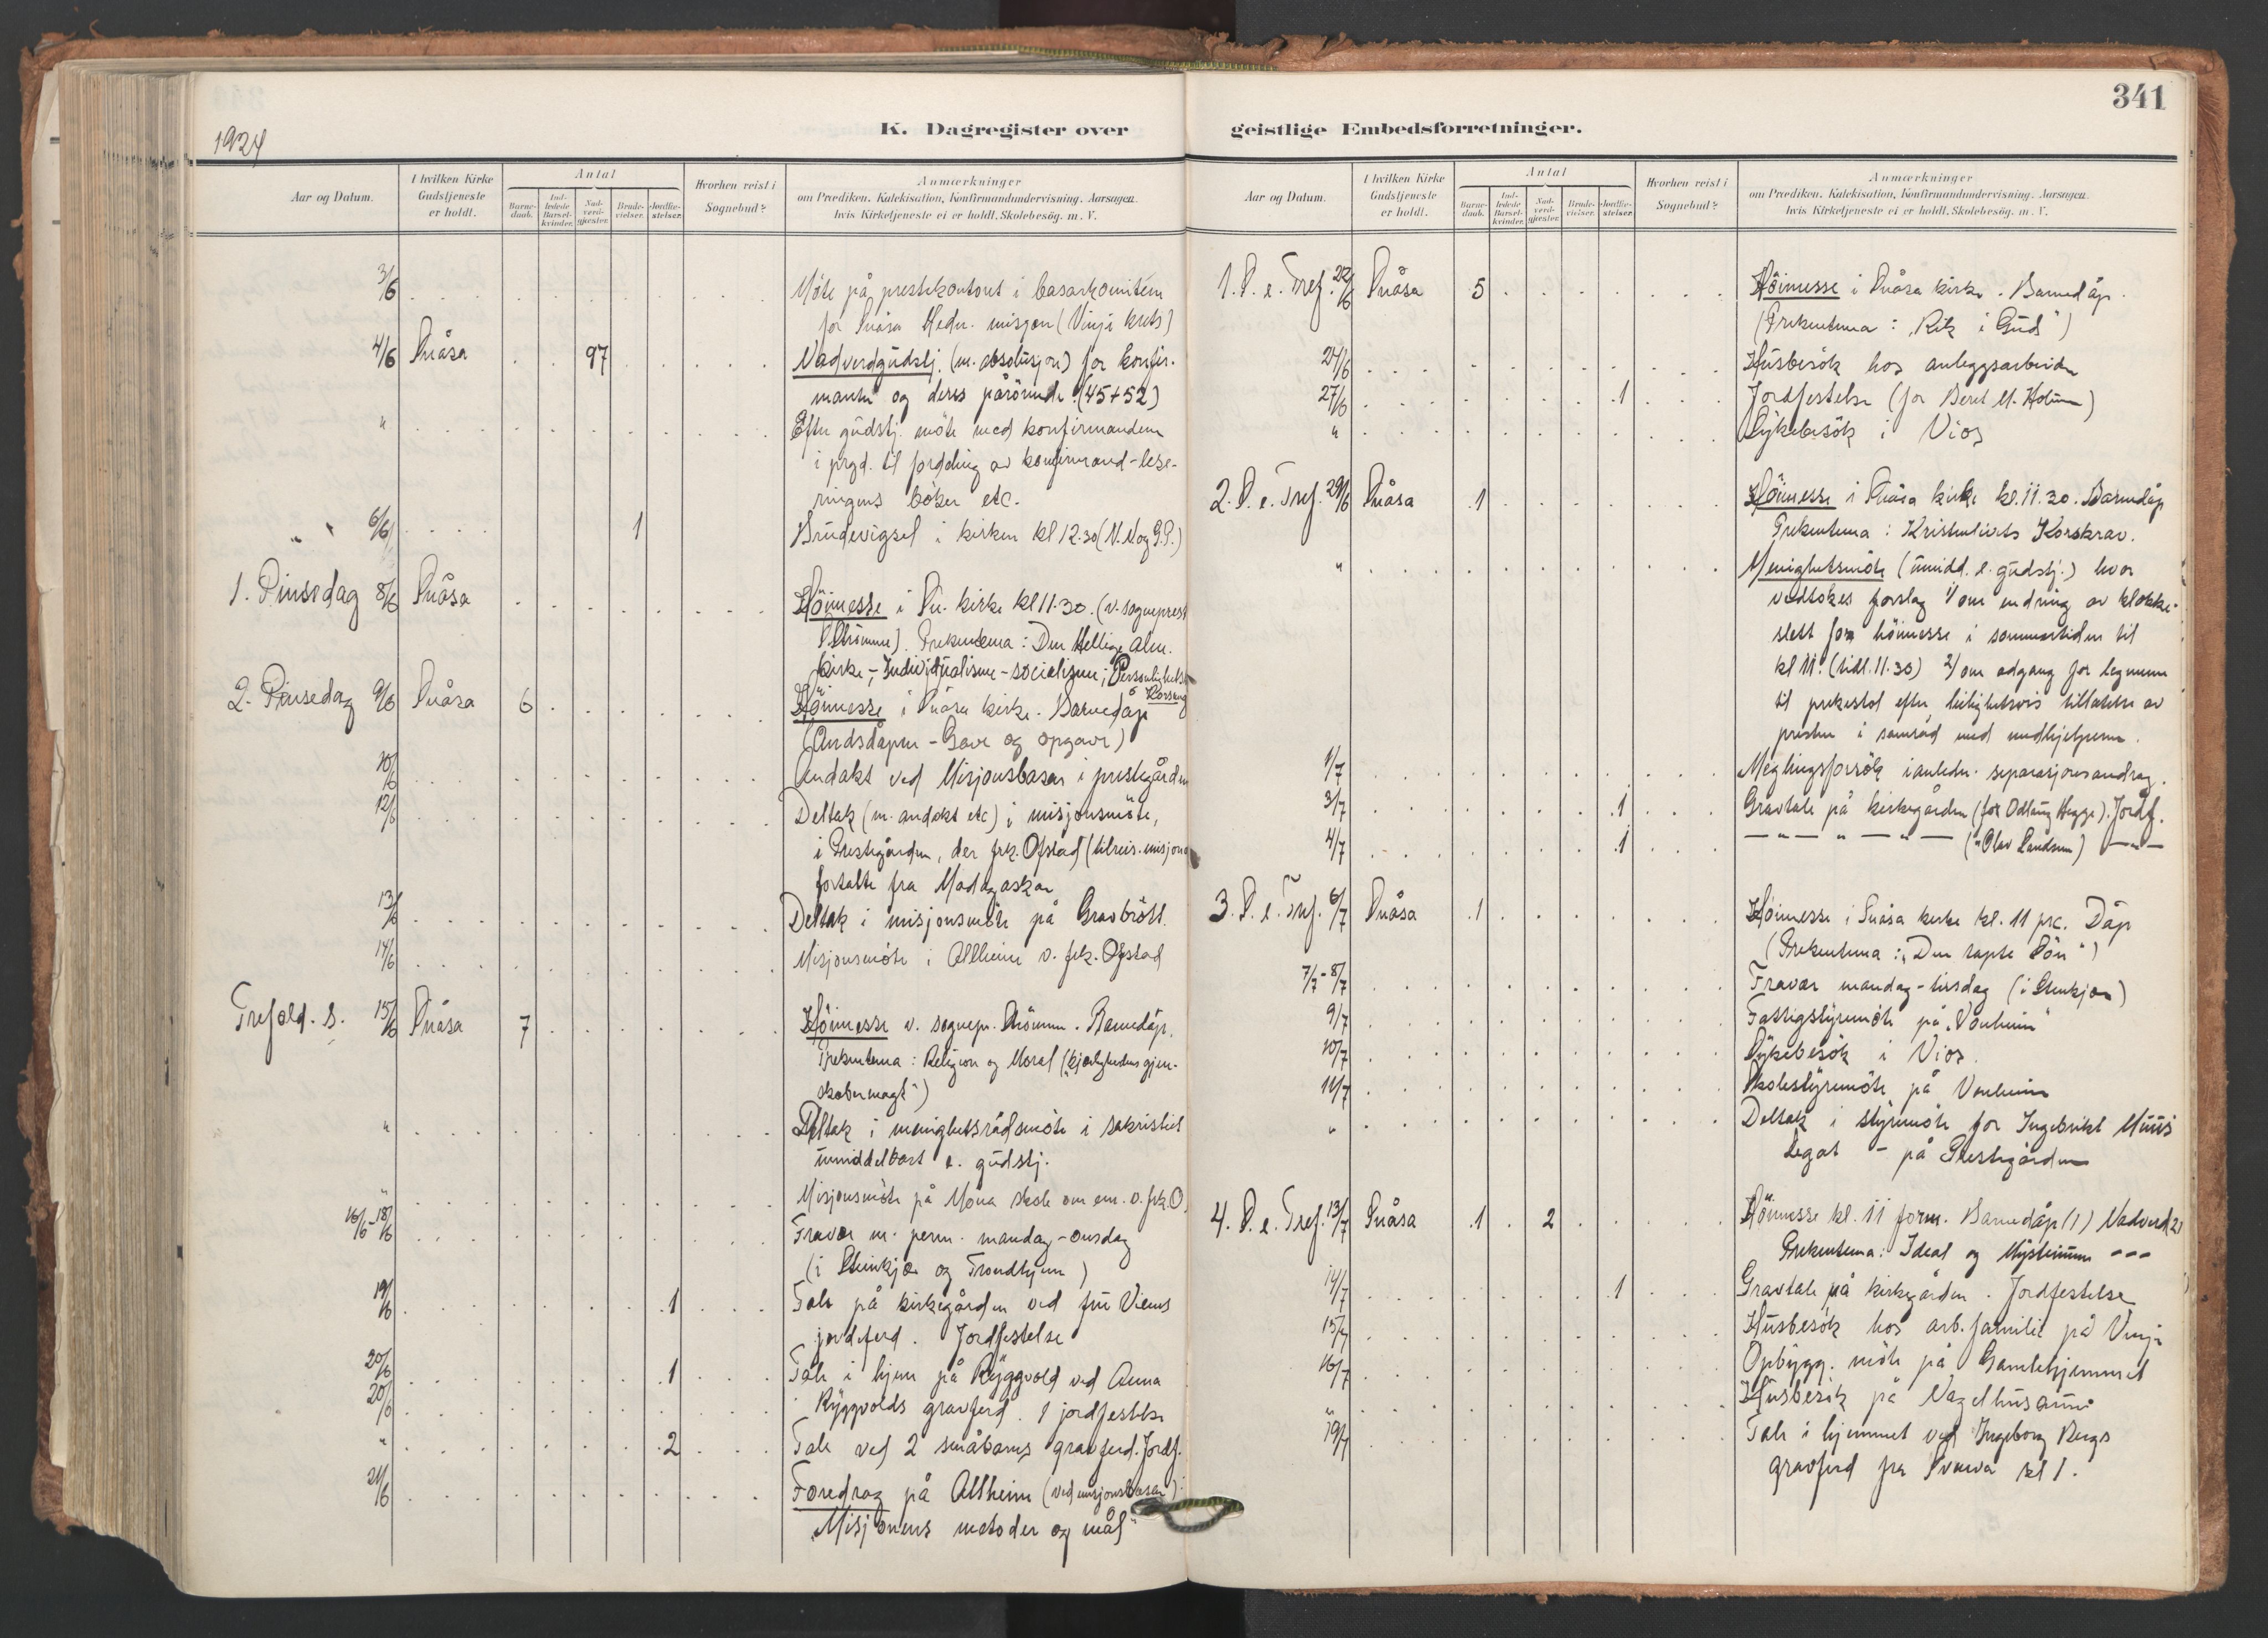 341
1924
K. Dagregister over
geistlige Embedsforretninger.
Aar og Datum.
I hvilken Kirke Gudstjeneste er holdt.
Antal
Barnedaab.
Indledede Barselkvinder.
Nadverdgjester.
Brudevielser.
Jordfæstelser.
Hvorhen reist i Sognebud?
Anmærkninger
om Prædiken. Katekisation, Konfirmandundervisning. Aarsagen.
hvis Kirketjeneste ei er holdt. Skolebesøg. m. V.
3/6 Möte på prestekontoret i basarkomiteen
for Snåsa Hedn. misjon (Vinje krets)
4/6 Snåsa 97 Nadverdgudstj. (m. absolusjon) for konfir-
manter og deres pårörende (45+52)
" Efter gudstj. möte med konfirmandene
i prgd. til fordeling av konfirmand-lese-
ringens böker etc.
" 6/6 1 Brudevigsel i kirken kl 12.30
1. Pinsedag 8/6 Snåsa Höimesse i Sn. kirke kl 11.30. (v. sogneprest
Strömme). Prekentema: Den Hellige alm.
kirke, - Individualisme - socialisme;
2. Pinsedag 9/6 Snåsa 6 Höimesse i Snåsa kirke. Barnedåp Korsang
(Åndsdåpen - Gave og opgave)
10/6 Andakt ved Misjonsbasar i prestegården
12/6 Deltak (m. andakt etc) i misjonsmöte,
i Prestegården, der frk. Ofstad (tilreis. misjonær
fortalte fra Madagaskar
13/6 Deltak i misjonsmöte på Gravbrött.
14/6 Misjonsmöte i Allheim v. frk. Ofstad
Trefold. s. 15/6 Snåsa 7 Höimesse v. sognepr. Strömme. Barnedåp.
Prekentema: Religion og Moral
skabermagt")
" Deltak i menighetsrådsmöte i sakristiet
umiddelbart e. gudstj.
" Misjonsmöte på Mona skole om em. v. frk. O.
16/6-18/6 Fravær m. perm. mandag - onsdag
(i Steinkjær og Trondhjem)
19/6 1 Tale på kirkegården ved fru Viems
jordeferd. Jordfestelse
20/6 1 Tale i hjem på Ryggvold ved Anna
20/6 Ryggvolds gravferd. 1 jordfestelse
" 2 Tale ved 2 småbarns gravferd. Jordf.
21/6 Foredrag på Allheim (ved misjonsbasar):
"Misjonens metoder og mål"
Aar og Datum.
I hvilken Kirke Gudstjeneste er holdt.
Antal
Barnedaab.
Indledede Barselkvinder.
Nadverdgjester.
Brudevielser.
Jordfæstelser.
Hvorhen reist i Sognebud?
Anmærkninger
om Prædiken. Katekisation, Konfirmandundervisning. Aarsagen.
hvis Kirketjeneste ei er holdt. Skolebesøg. m. V.
1. S. e. Tref. 22/6 Snåsa 5 Höimesse i Snåsa kirke. Barnedåp.
(Prekentema: "Rik i Gud")
24/6 Husbesök hos anleggsarbeider
27/6 1 Jordfestelse (for Beret M. Holum)
" Sykebesök i Vios
2. S. e. Tref. 29/6 Snåsa 1 Höimesse i Snåsa kirke kl. 11.30. Barnedåp
Prekentema: Kristenlivets Korskrav.
" Menighetsmöte (umidd. e. gudstj.) hvor
vedtokes forslag 1/ om endring av klokke-
slett for höimesse i sommertiden til
kl 11. (tidl. 11.30) 2/ om adgang for legmenn
til prekestol efter leilighetsvis tillatelse av
presten i samråd med medhjelperne.
1/7 Meglingsforsök i anledn. separasjonsandrag.
3/7 1 Gravtale på kirkegården (for Odlaug Hegge). Jordf.
4/7 1 — " — " — " — (" Olav Sandnes) — " —
3. S. e. Tref. 6/7 Snåsa 1 Höimesse i Snåsa kirke kl. 11 prc. Dåp
(Prekentema: "Den tapte Sön")
7/7-8/7 Fravær mandag - tirsdag (i Stenkjær)
9/7 Fattigstyremöte på "Vonheim"
10/7 Sykebesök i Vios.
11/7 Skolestyremöte på Vonheim
" Deltak i styremöte for Ingebrikt Muus
Legat - på Prestegården
4. S. e. Tref. 13/7 Snåsa 1 2 Höimesse kl. 11 form. Barnedåp (1) Nadverd (2)
Prekentema: Ideal og Mysterium ---
14/7 1 Gravtale på kirkegården. Jordfestelse
15/7 Husbesök hos arb. familie på Vinje
16/7 Opbygg. möte på Gamlehjemmet
" Husbesök på
19/7 Tale i hjemmet ved Ingeborg Bergs
gravferd fra kl 1.